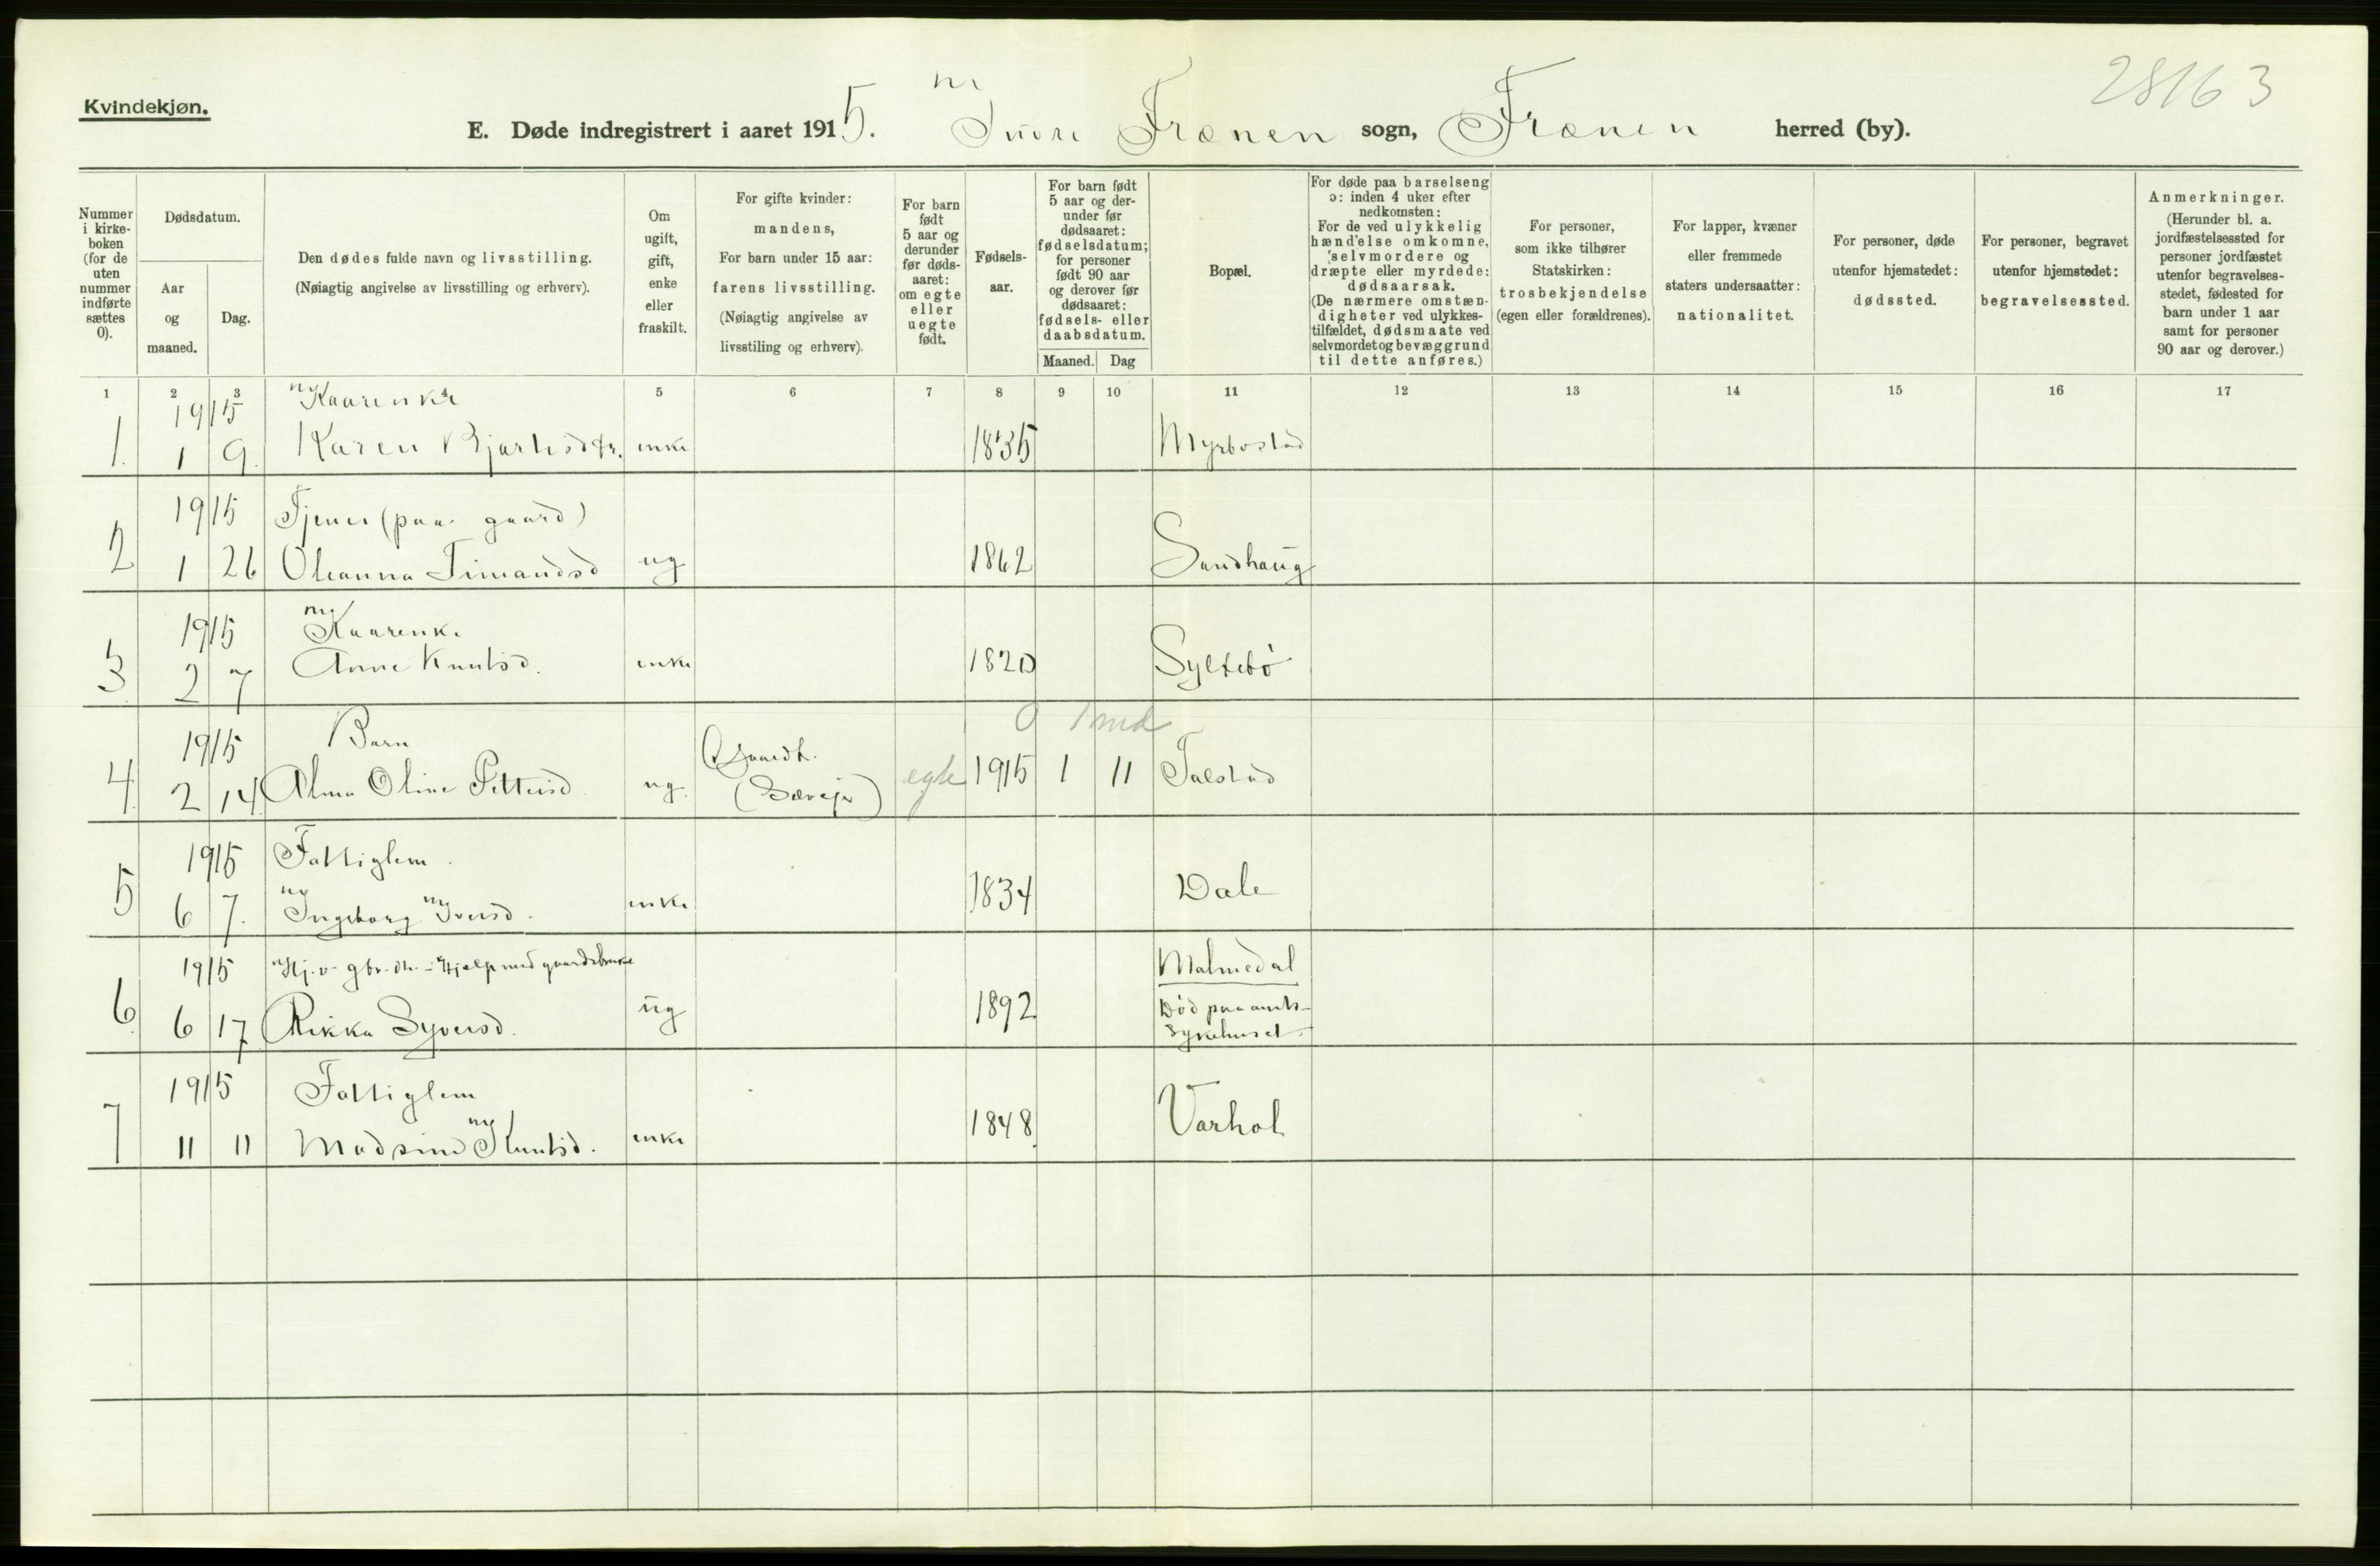 28163
Kvindekjøn.
E. Døde indregistrert i aaret 1915. Indre Frænen sogn, Frænen herred (by).
Nummer i kirke-boken (for de uten nummer indførte sættes 0).
Dødsdatum.
Aar og maaned.
Dag.
Den dødes fulde navn og livsstilling.
(Nøiagtig angivelse av livsstilling og erhverv).
Om ugift, gift, enke eller fraskilt.
For gifte kvinder:
mandens,
For barn under 15 aar:
farens livsstilling.
(Nøiagtig angivelse av
livsstiling og erhverv).
For barn født 5 aar og derunder før døds-aaret: om egte eller uegte født.
Fødsels-aar.
For barn født 5 aar og der-under før dødsaaret: fødselsdatum; for personer født 90 aar og derover før dødsaaret: fødsels- eller daabsdatum.
Maaned. Dag
Bopæl.
For døde paa barselseng ɔ: inden 4 uker efter nedkomsten: For de ved ulykkelig hændelse omkomne, selvmordere og dræpte eller myrdede: dødsaarsak. (De nærmere omstæn-digheter ved ulykkes-tilfældet, dødsmaate ved selvmordet og bevæggrund til dette anføres.)
For personer,
som ikke tilhører
Statskirken:
trosbekjendelse
(egen eller forældrenes).
For lapper, kvæner
eller fremmede
staters undersaatter:
nationalitet.
For personer, døde
utenfor hjemstedet:
dødssted.
For personer, begravet
utenfor hjemstedet:
begravelsessted.
Anmerkninger.
(Herunder bl. a. jordfæstelsessted for personer jordfæstet utenfor begravelses-stedet, fødested for barn under 1 aar samt for personer 90 aar og derover.)
1 2 3 4 5 6 7 8 9 10 11 12 13 14 15 16 17
1915 Kaarenke
1. 1 9. Karen Bjartsdtr. enke 1835 Myrbostad
1915 Tjener (paa gaard)
2 1 26 Oleanna Timandsd ug 1862 Sandhaug
1915 Kaarenke
3. 2 7 Anne Knutsd. enke 1820 Syltebö
0 1 md
1915 Barn Gaardb.
4. 2 14. Alma Oline Pettersd ug. egte 1915 1 11 Talstad
1915 Fattiglem.
5 6 7. Ingeborg Iversd. enke 1834 Dale
1915 Hj. v. gbr. - Hjelp med gaardsbruket Malmedal
6. 6 17 Rikka Syversd. ug 1892 Död paa amts-
sykehuset.
1915 Fattiglem
7 11 11 Madsine Knutsd. enke 1848. Varhol